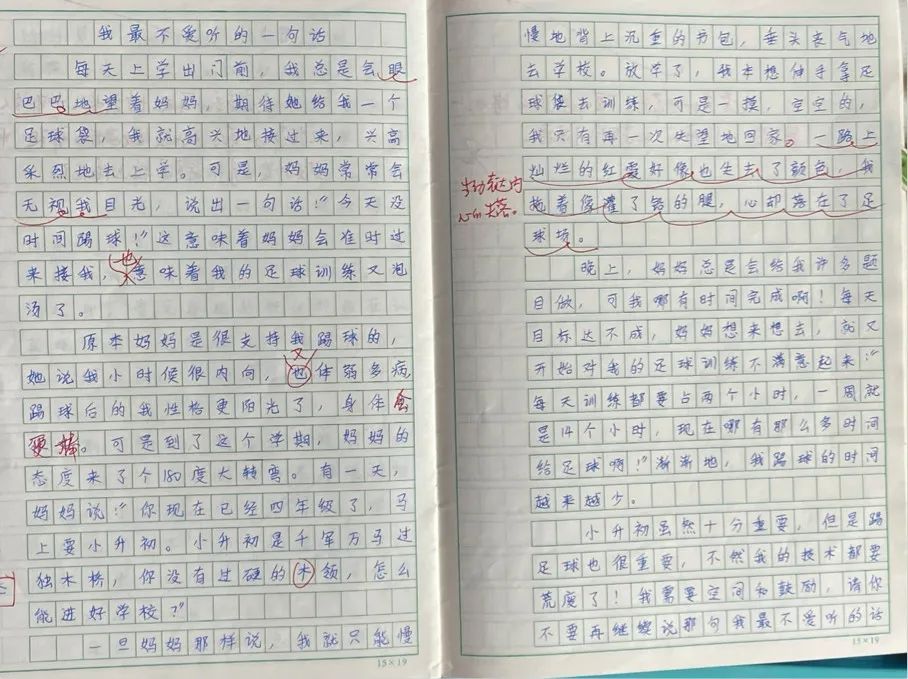 我最不爱听的一句话
每天上学出门前，我总是会眼
巴巴地望着妈妈，期待她给我一个
足球袋，我就高兴地接过来，兴高
采烈地去上学。可是，妈妈常常会
无视我目光，说出一句话：“今天没
时间踢球！”这意味着妈妈会准时过
来接我，也意味着我的足球训练又泡
汤了。
原本妈妈是很支持我踢球的，
她说我小时候很内向，又体弱多病，
踢球后的我性格更阳光了，身体
更棒。可是到了这个学期，妈妈的
态度来了个180度大转弯。有一天，
妈妈说：“你现在已经四年级了，马
上要小升初。小升初是千军万马过
独木桥，你没有过硬的本领，怎么
能进好学校？”
一旦妈妈那样说，我就只能慢
15×19
慢地背上沉重的书包，垂头丧气地
去学校。放学了，我本想伸手拿足
球袋去训练，可是一摸，空空的，
我只有再一次失望地回家。一路上
灿烂的红霞好像也失去了颜色，我
拖着像灌了铅的腿，心却落在了足
球场。
生动表达内
心的失落。
晚上，妈妈总是会给我许多题
目做，可我哪有时间完成啊！每天
目标达不成，妈妈想来想去，就又
开始对我的足球训练不满意起来：“
每天训练都要占两个小时，一周就
是14个小时，现在哪有那么多时间
给足球啊！”渐渐地，我踢球的时间
越来越少。
小升初虽然十分重要，但是踢
足球也很重要，不然我的技术都要
荒废了！我需要空间和鼓励，请你
不要再继续说那句我最不爱听的话
15×19